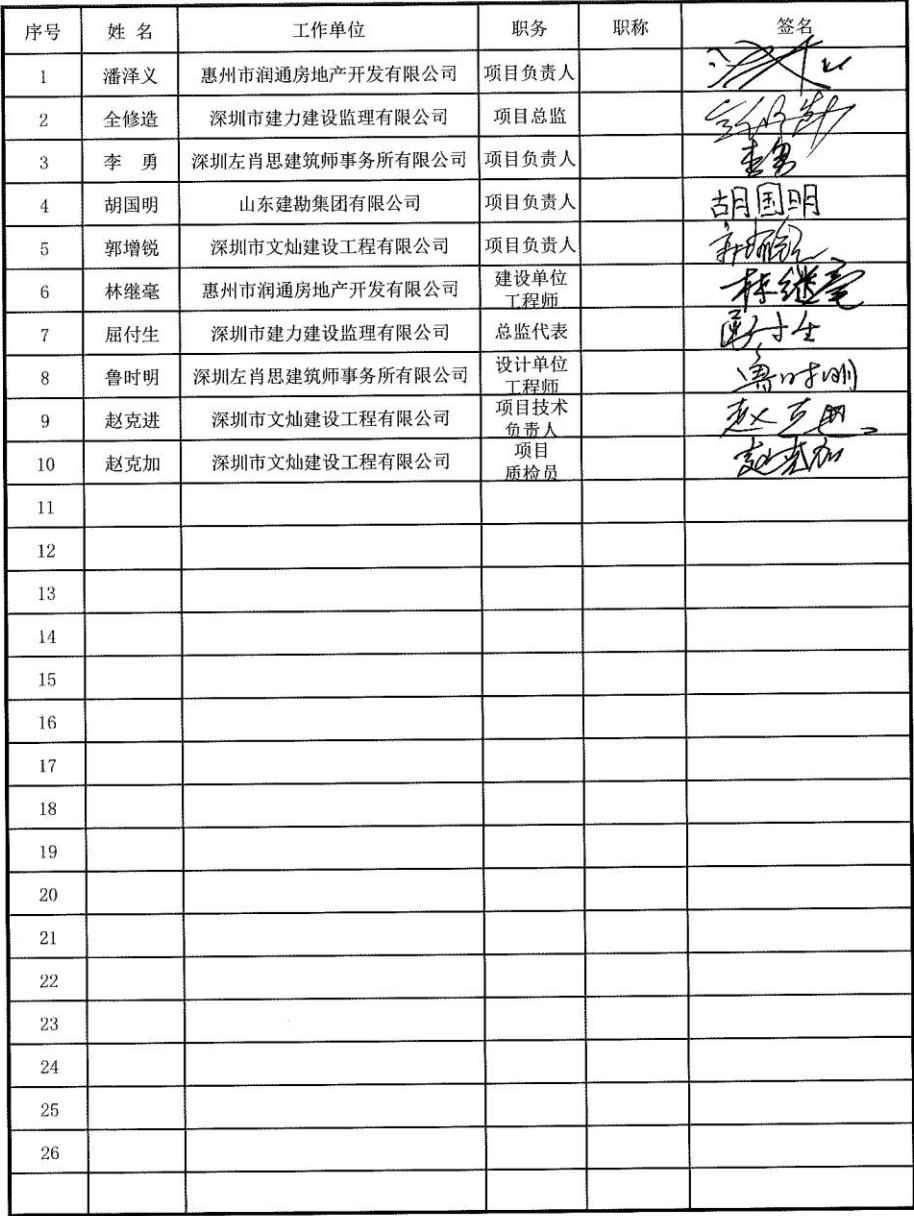 序号 姓 名 工作单位 职务 职称 签名
1 潘泽义 惠州市润通房地产开发有限公司 项目负责人
2 全修造 深圳市建力建设监理有限公司 项目总监
3 李 勇 深圳左肖思建筑师事务所有限公司 项目负责人 李勇
4 胡国明 山东建勘集团有限公司 项目负责人 胡国明
5 郭增锐 深圳市文灿建设工程有限公司 项目负责人
6 林继毫 惠州市润通房地产开发有限公司 建设单位 林继毫
工程师
7 屈付生 深圳市建力建设监理有限公司 总监代表 屈付生
8 鲁时明 深圳左肖思建筑师事务所有限公司 设计单位 鲁时明
工程师
9 赵克进 深圳市文灿建设工程有限公司 项目技术
负责人
10 赵克加 深圳市文灿建设工程有限公司 项目 赵克加
质检员
11
12
13
14
15
16
17
18
19
20
21
22
23
24
25
26